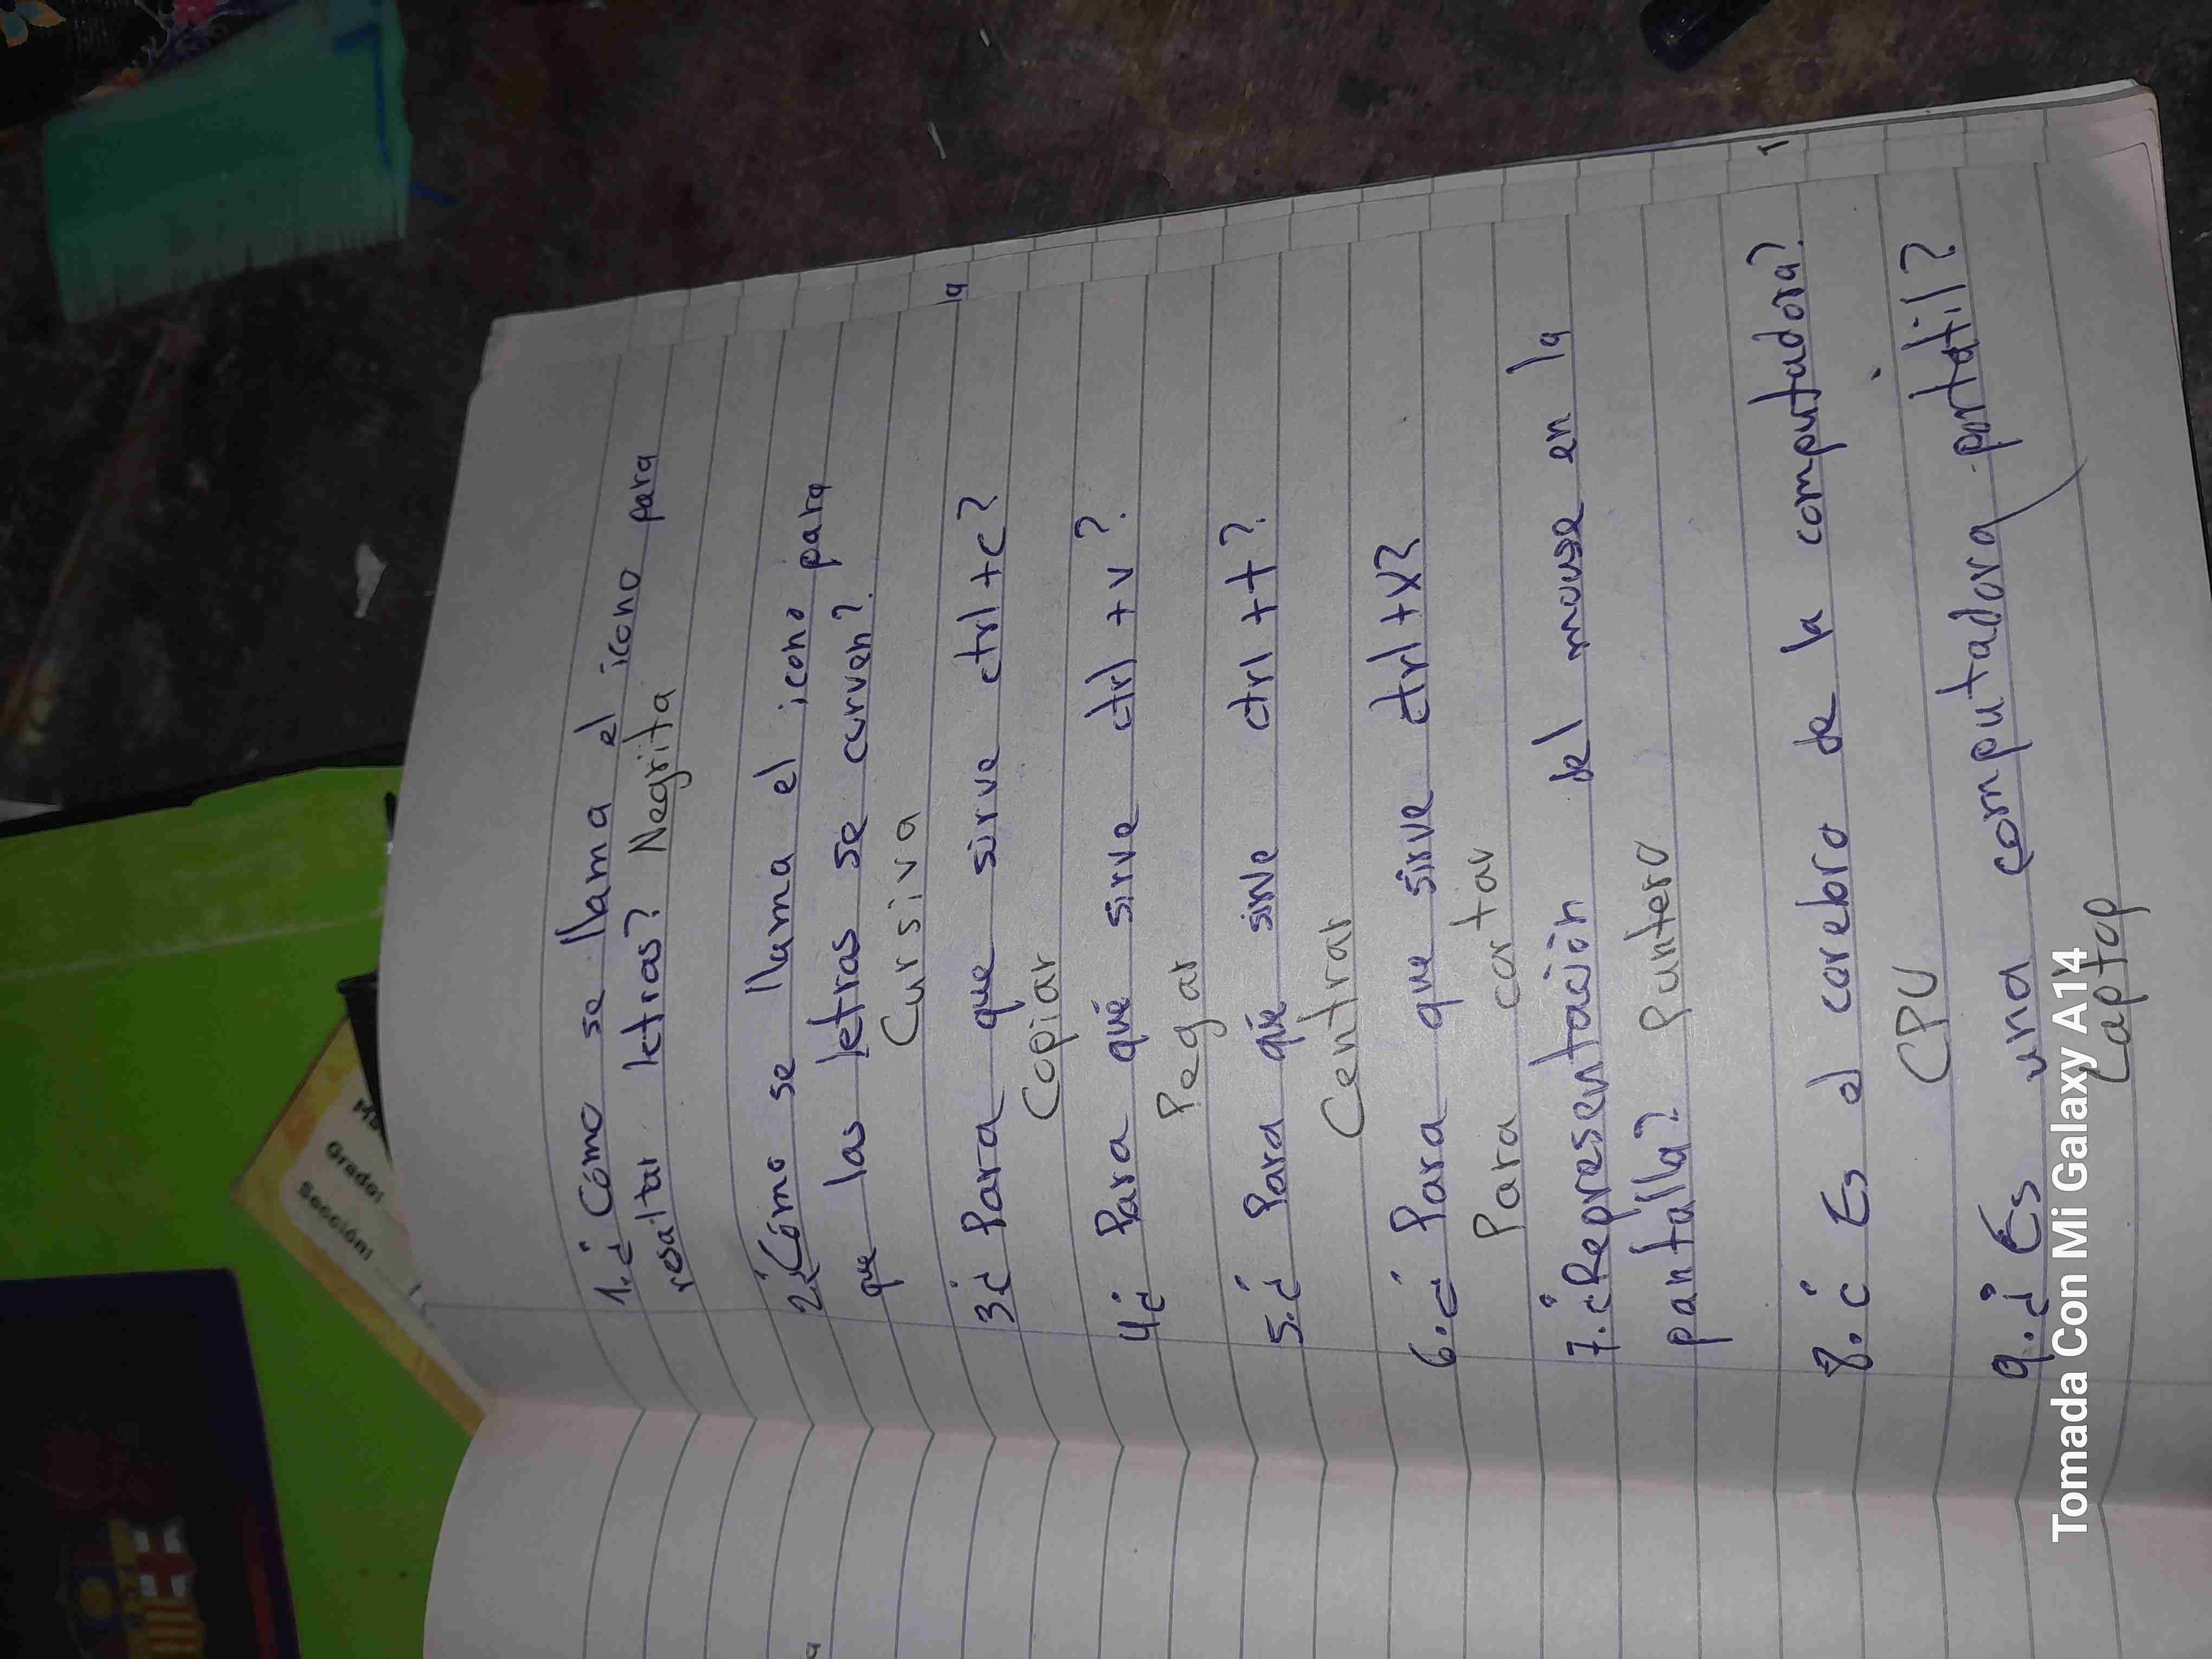 1.¿Cómo se llama el icono para
resaltar letras? Negrita
2.¿Cómo se llama el icono para
que las letras se curven?
Cursiva
3¿ Para que sirve ctrl+c?
Copiar
4¿ Para qué sirve ctrl+v?
Pegar
5.¿ Para qué sirve ctrl+t?
Centrar
6.¿ Para que sirve ctrl+x?
Para cortar
7.¿Representación del mouse en la
pantalla? Puntero
8.¿ Es el cerebro de la computadora?
CPU
9.¿ Es una computadora portátil?
Laptop
Tomada Con Mi Galaxy A14
Grado:
Sección: